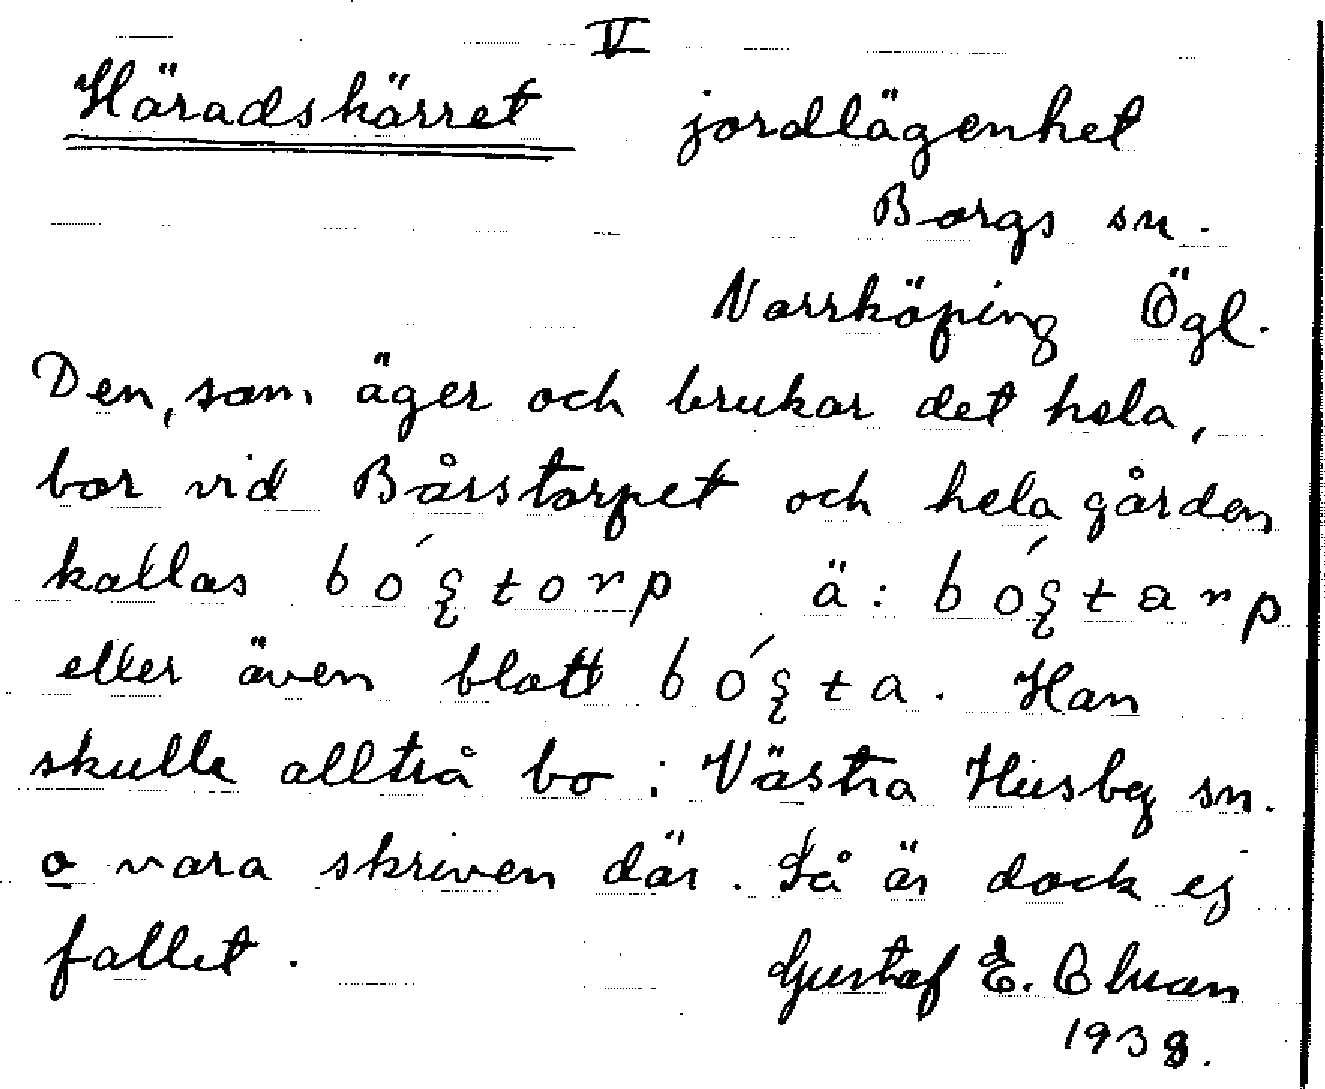 V
Häradskärret jordlägenhet
Borgs sn.
Norrköping Ögl.
Den, som äger och brukar det hela,
bor vid Bårstorpet och hela gården
kallas bó́ʂtorp ä: bó́ʂtarp
eller även blott bó́ʂta. Han
skulle alltså bo i Västra Husby sn.
o vara skriven där. Så är dock ej
fallet.
Gustaf E.
1938.